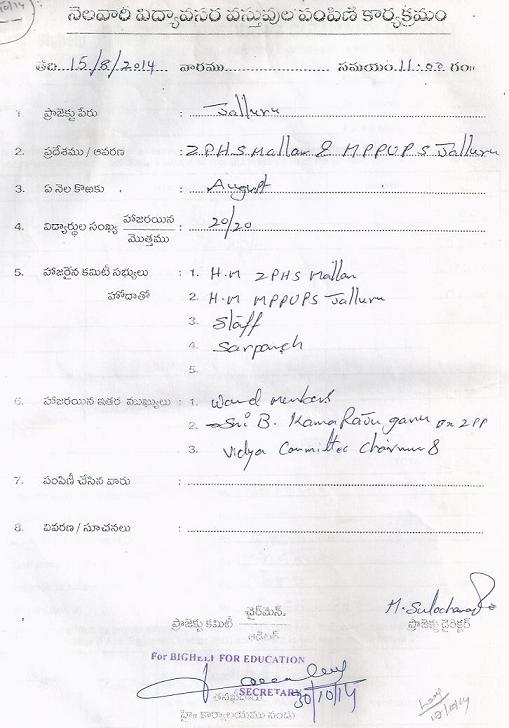 నెలవారీ విద్యావసర వస్తువుల పంపిణీ కార్యక్రమం
తేది 15/8/2014 వారము సమయం 11:00 గం॥
1. ప్రాజెక్టు పేరు : Jalluru
2. ప్రదేశము / ఆవరణ : ZPHS Mallam & MPPUPS Jalluru
3. ఏ నెల కొఱకు : August
4. విద్యార్థుల సంఖ్య హాజరయిన / మొత్తము : 20/20
5. హాజరైన కమిటీ సభ్యులు : 1. H.M ZPHS Mallam
హోదాతో 2. H.M MPPUPS Jalluru
3. Staff
4. Sarpanch
5.
6. హాజరయిన ఇతర ముఖ్యులు : 1. Ward members
2. Sri B. Kama Raju garu
3. Vidya Committee Chairman &
7. పంపిణీ చేసిన వారు :
8. వివరణ / సూచనలు :
M. Sulochana
ప్రాజెక్టు కమిటీ ఛైర్మెన్. ప్రాజెక్టు డైరెక్టర్
ఆడిటర్
For BIGHELP FOR EDUCATION
SECRETARY 30/10/14
తనిఖీదారు
హైః కార్యాలయము నందు